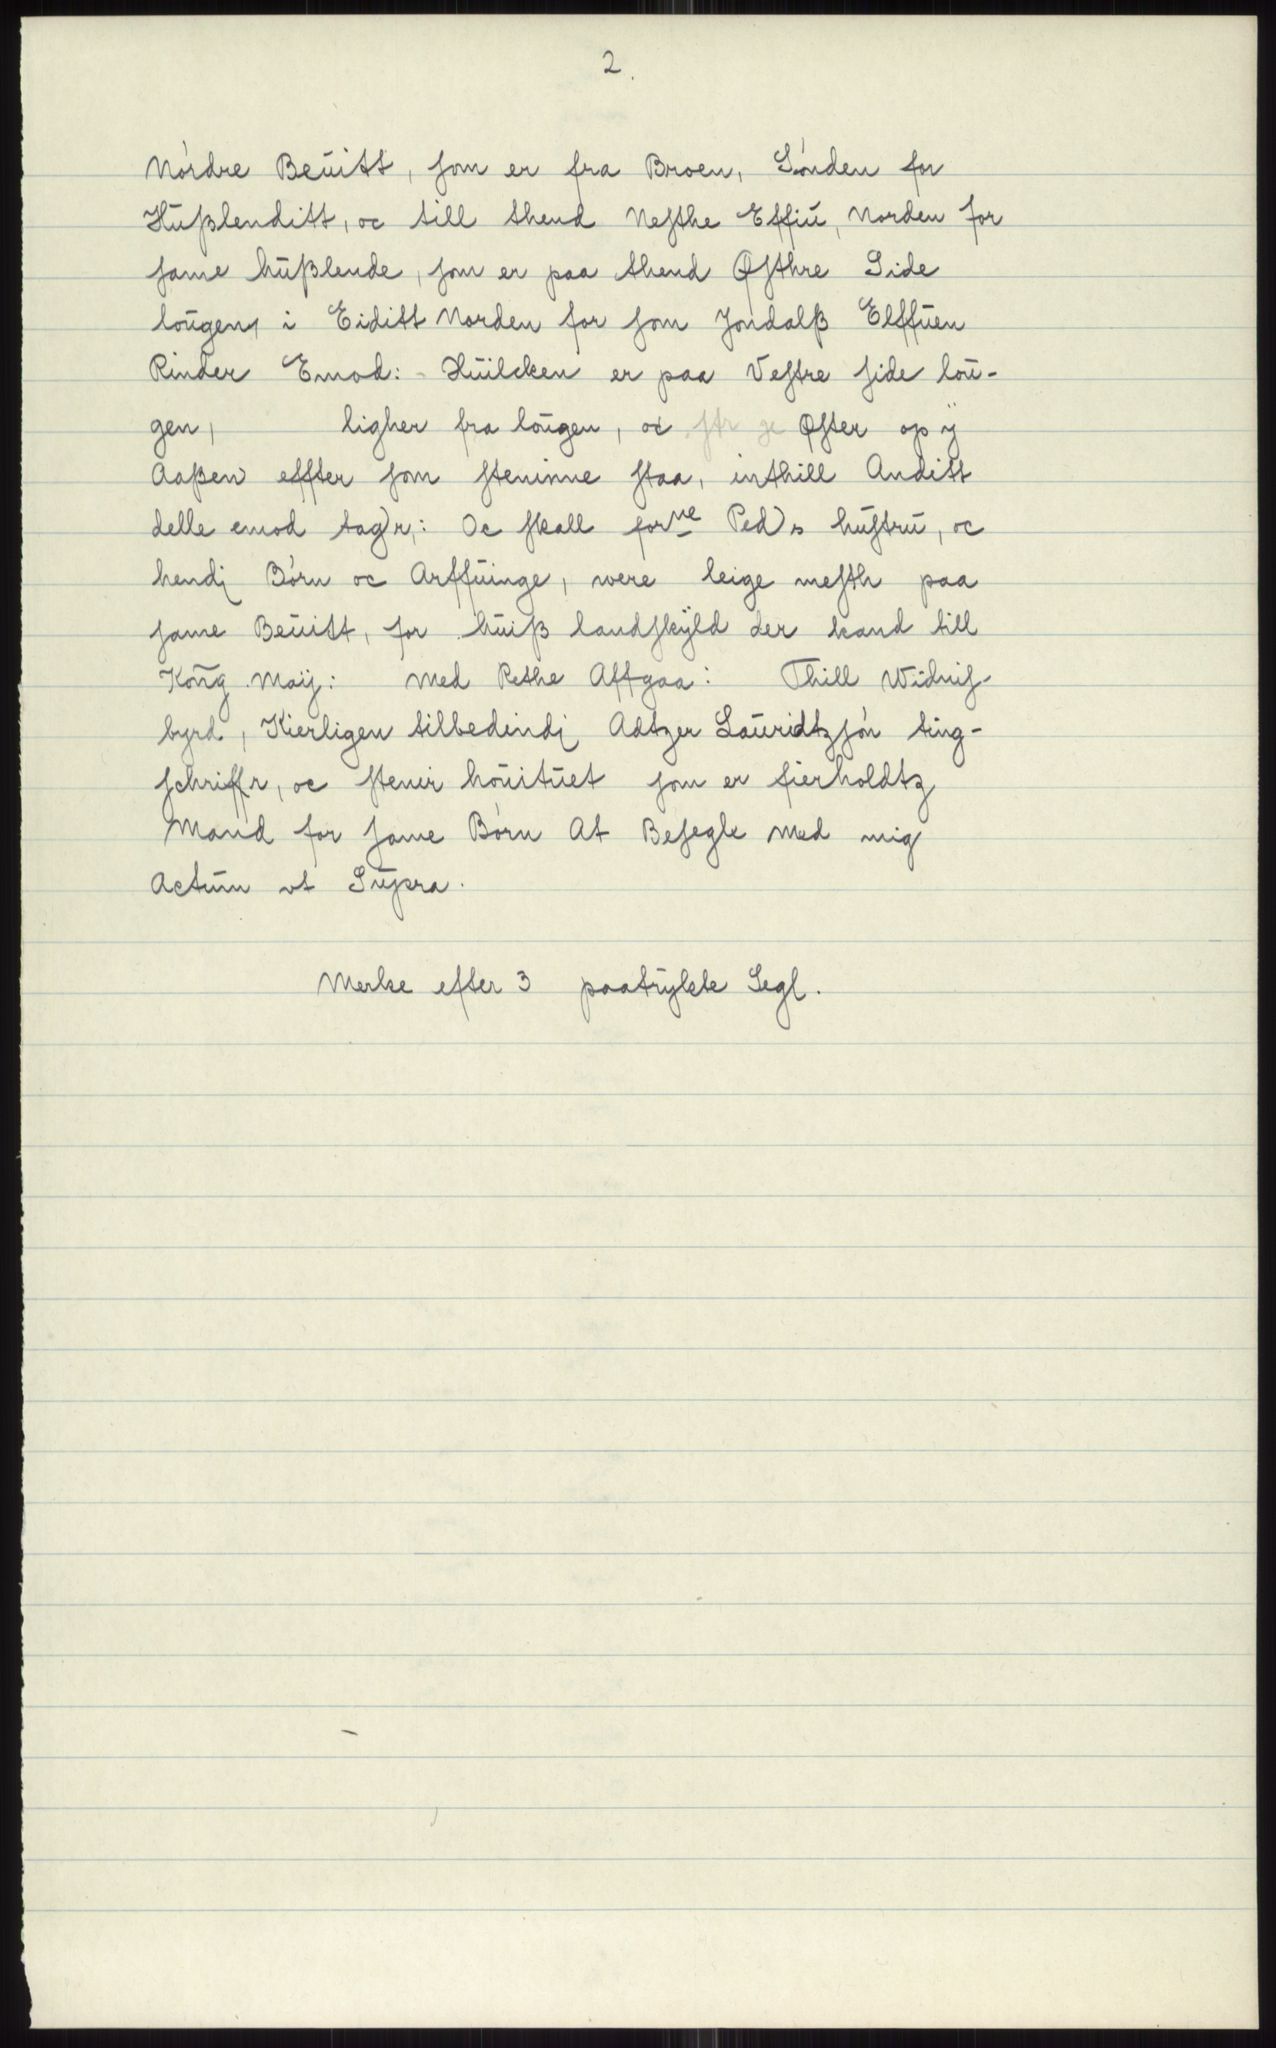 2.
Nórdre Beuitt, som er fra Broen, Sónden for
Hußlenditt, oc till thend Nesthe Effiu, Norden for
same hußlende, som er paa thend Østhre Side
lougen, i Eiditt Norden for som Jondalß Elffuen
Rinder Emod: - Huilcken er paa Vestre side lou-
gen, ligher fra lougen, oc Øster op ÿ
Aaßen effter som steninne staa, inthill Anditt
delle emod tagr,: Oc skall forne Peds hustru, oc
hendj Börn oc Arffuinge, were leige nesth paa
same Beuitt, for huiß landskÿld der kand till
Kong Maÿ: med Rethe Affgaa: Thill Widnis-
byrd, Kierligen tilbedindj Adtzer Lauridtzsón ting-
schriffr, oc stenir houituet som er fierholdtz
Mand for same Börn At Besegle med mig
Actum vt Supra.
Merke efter 3 paatrykte Segl.